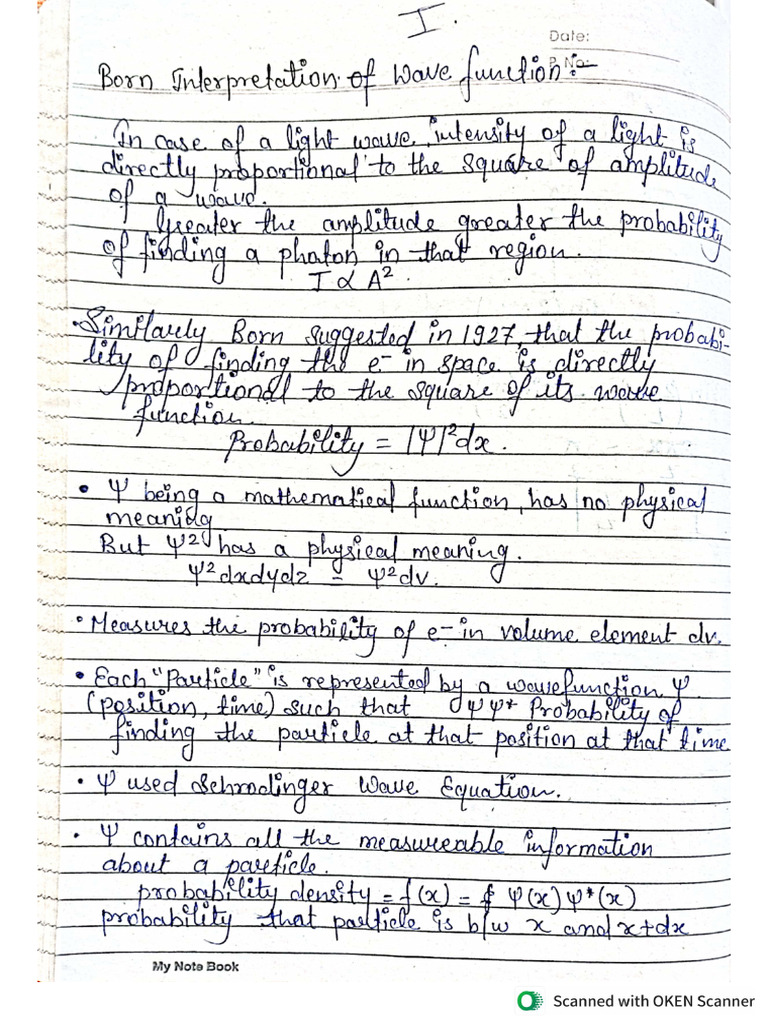 I.
Date:
P. No:
Born Interpretation of Wave function :-
In case of a light wave, intensity of a light is
directly proportional to the square of amplitude
of a wave.
Greater the amplitude greater the probability
of finding a photon in that region.
I ∝ A²
• Similarly Born suggested in 1927, that the probabi-
lity of finding the e⁻ in space is directly
proportional to the square of its wave
function.
Probability = |Ψ|²dx.
• Ψ being a mathematical function, has no physical
meaning
But Ψ² has a physical meaning.
Ψ²dxdydz = Ψ²dv.
• Measures the probability of e⁻ in volume element dv.
• Each "Particle" is represented by a wavefunction Ψ
(position, time) such that ΨΨ* Probability of
finding the particle at that position at that time
• Ψ used Schrodinger Wave Equation.
• Ψ contains all the measureable information
about a particle.
probability density = f(x) = Ψ(x)Ψ*(x)
probability that particle is b/w x and x+dx
My Note Book
Scanned with OKEN Scanner